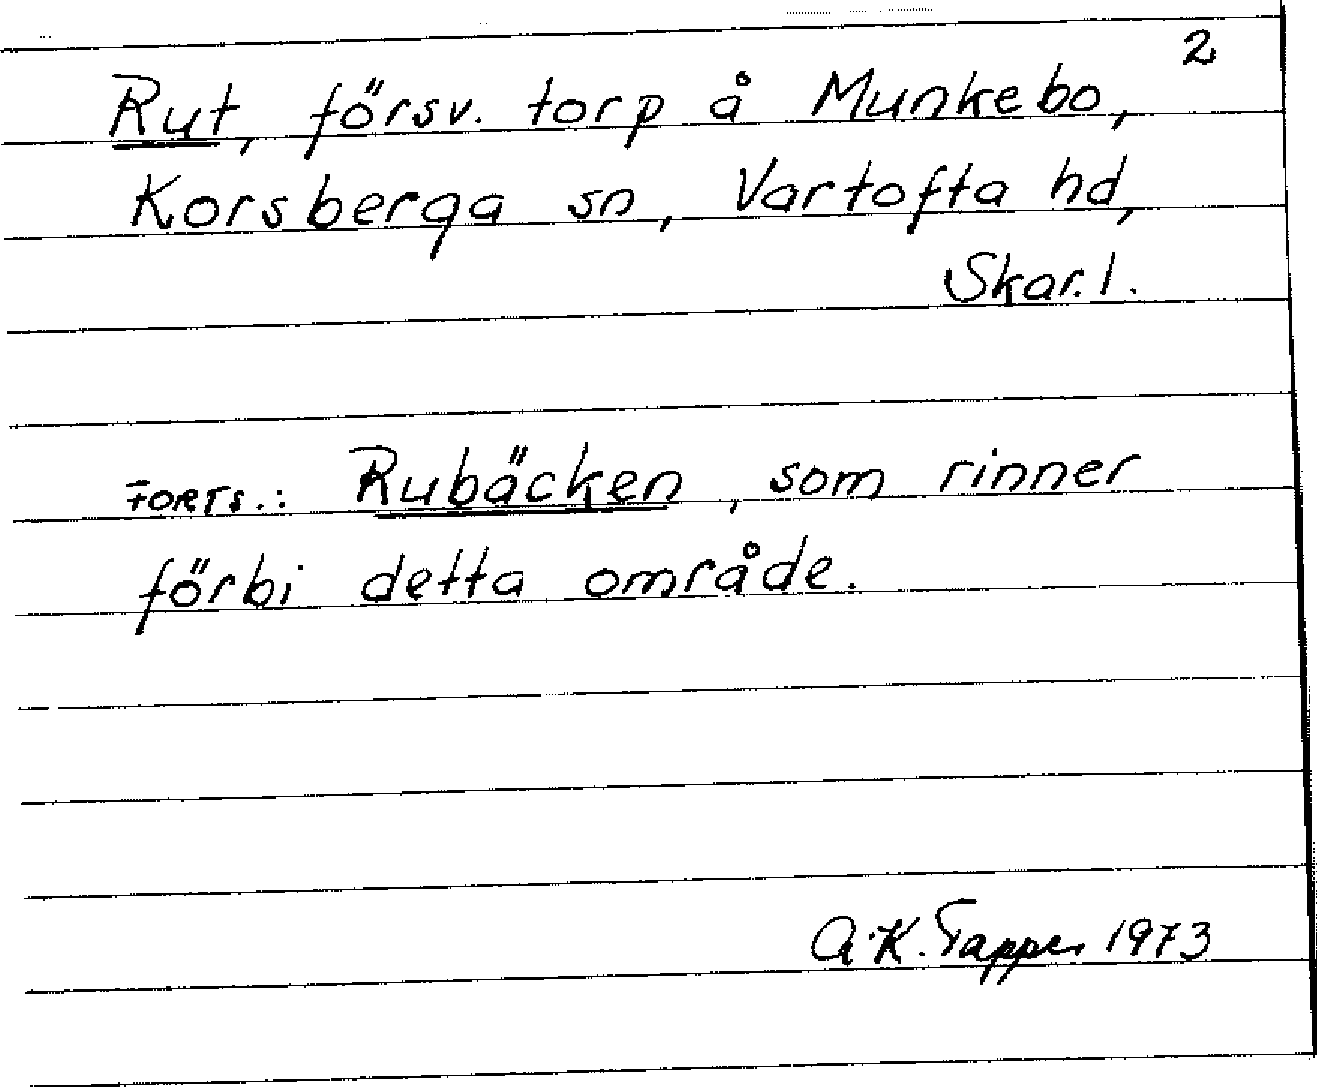 2
Rut, försv. torp å Munkebo,
Korsberga sn, Vartofta hd,
Skar. l.
FORTS.: Rubäcken, som rinner
förbi detta område.
A.K. Tapper 1973